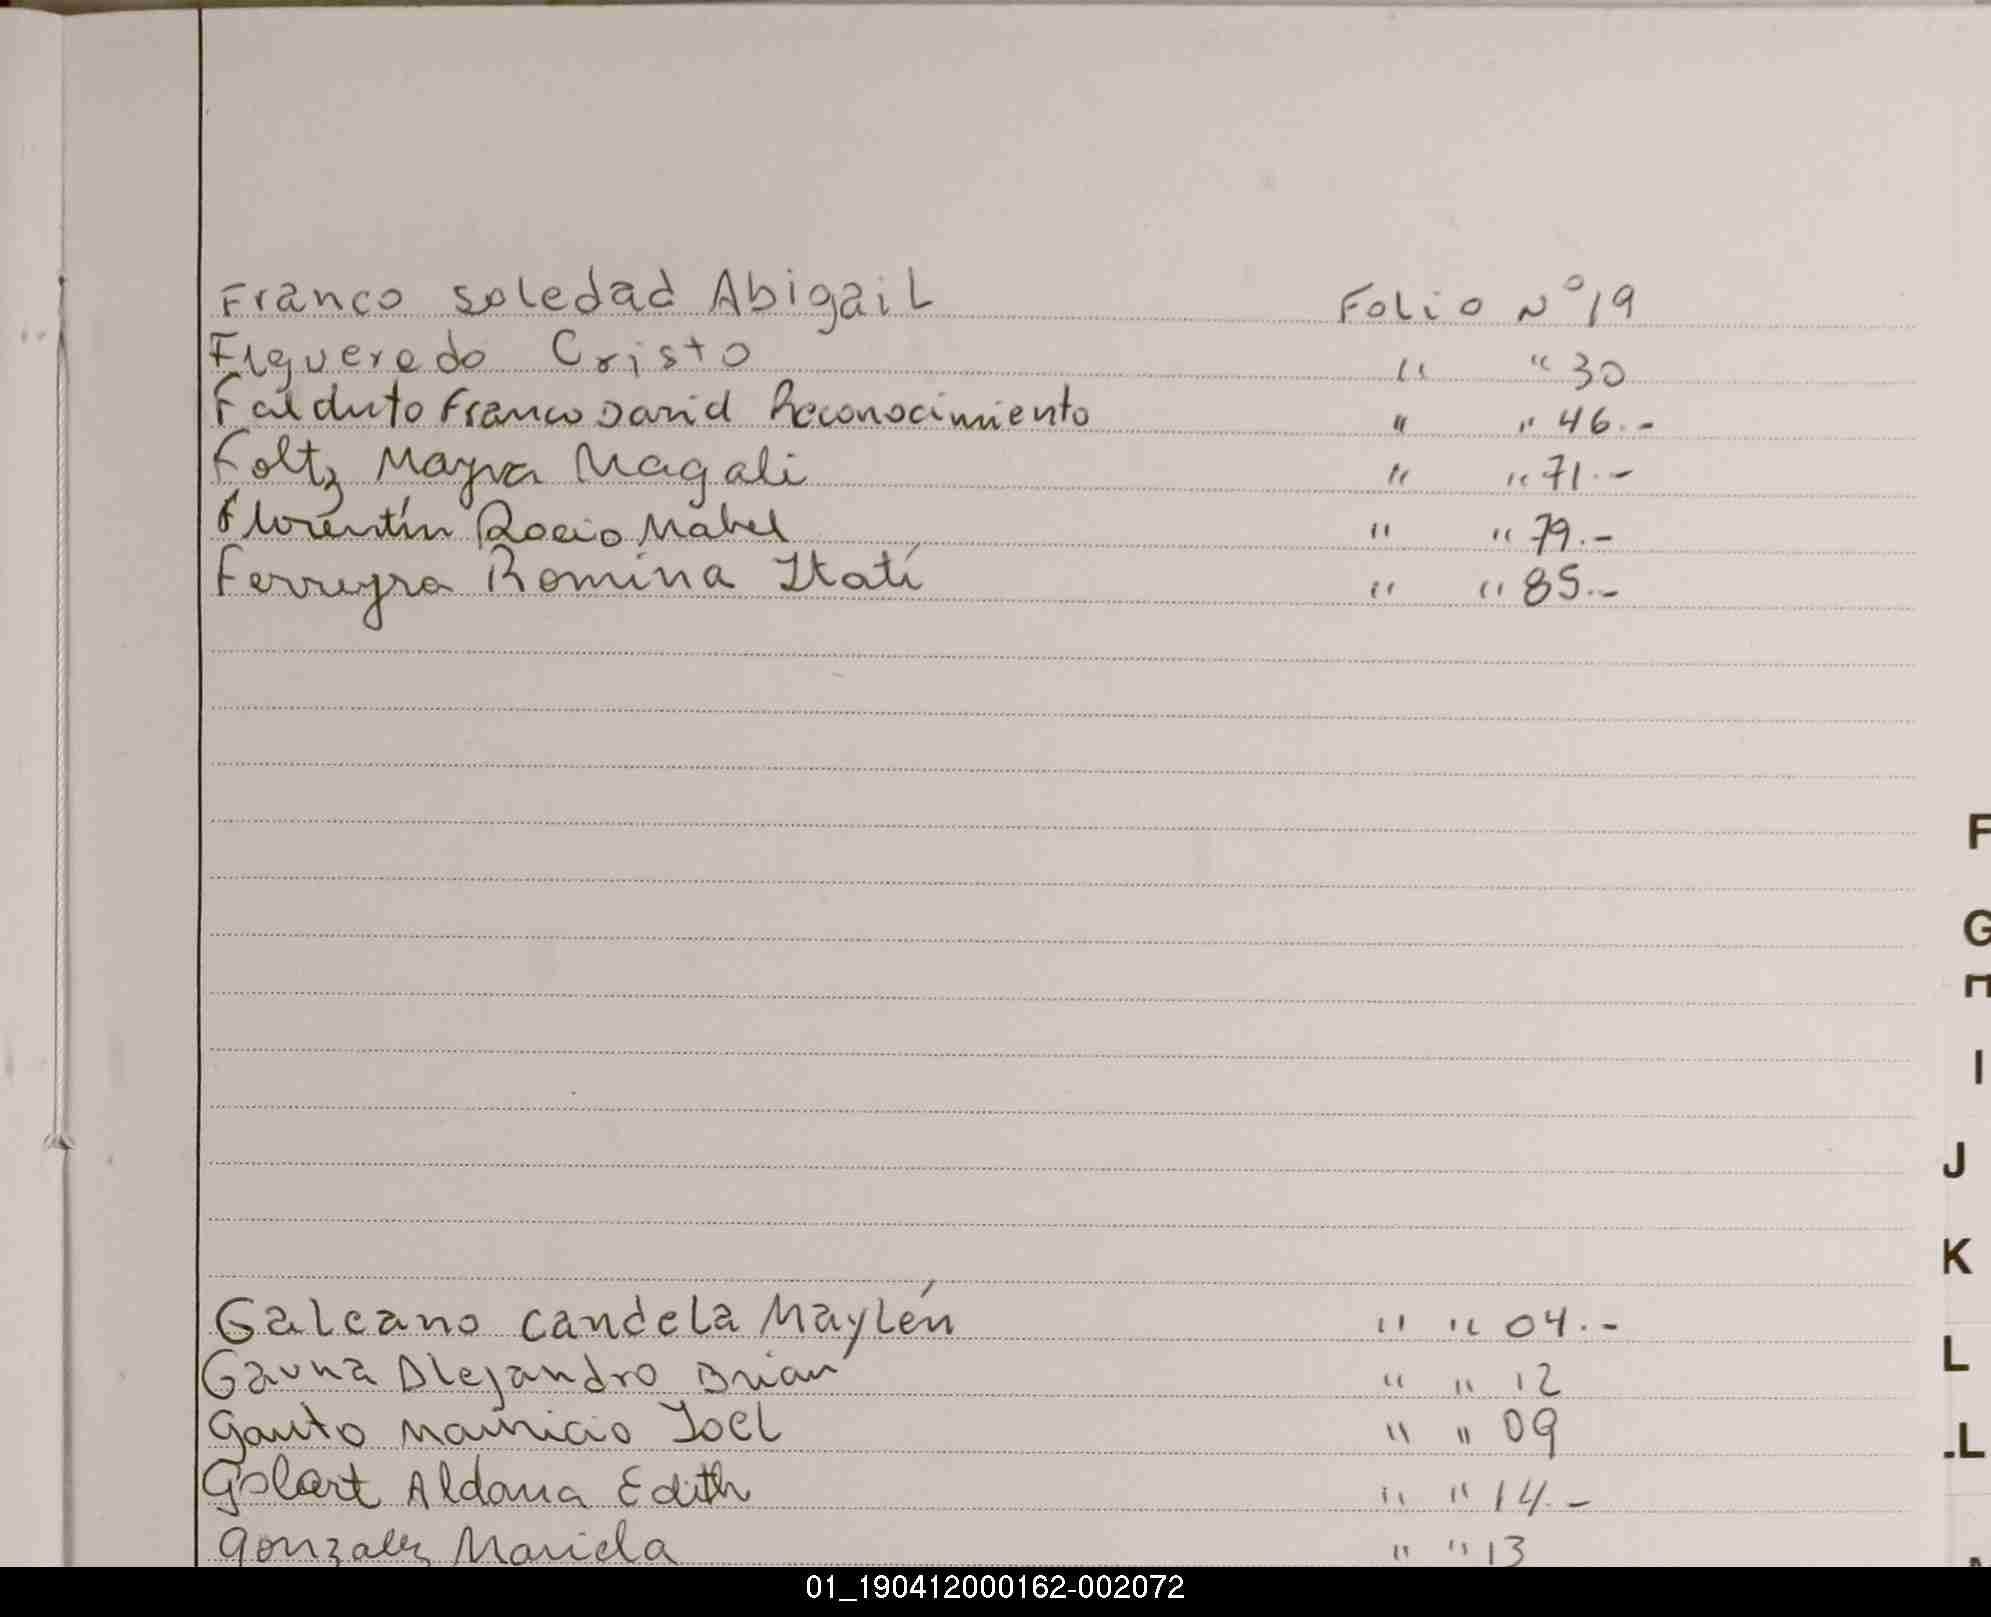 Franco Soledad Abigail Folio N° 19
Figueredo Cristo " " 30
Falduto Franco David Reconocimiento " " 46.-
Foltz Mayra Magali " " 71.-
Florentín Rocio Mabel " " 79.-
Ferreyra Romina Itatí " " 85.-
F
G
I
J
K
Galeano Candela Maylén " " 04.-
L
Gauna Alejandro Brian " " 12
Gauto Mauricio Joel " " 09
.L
Golart Aldana Edith " " 14.-
Gonzalez Mariela " " 13
01_190412000162-002072